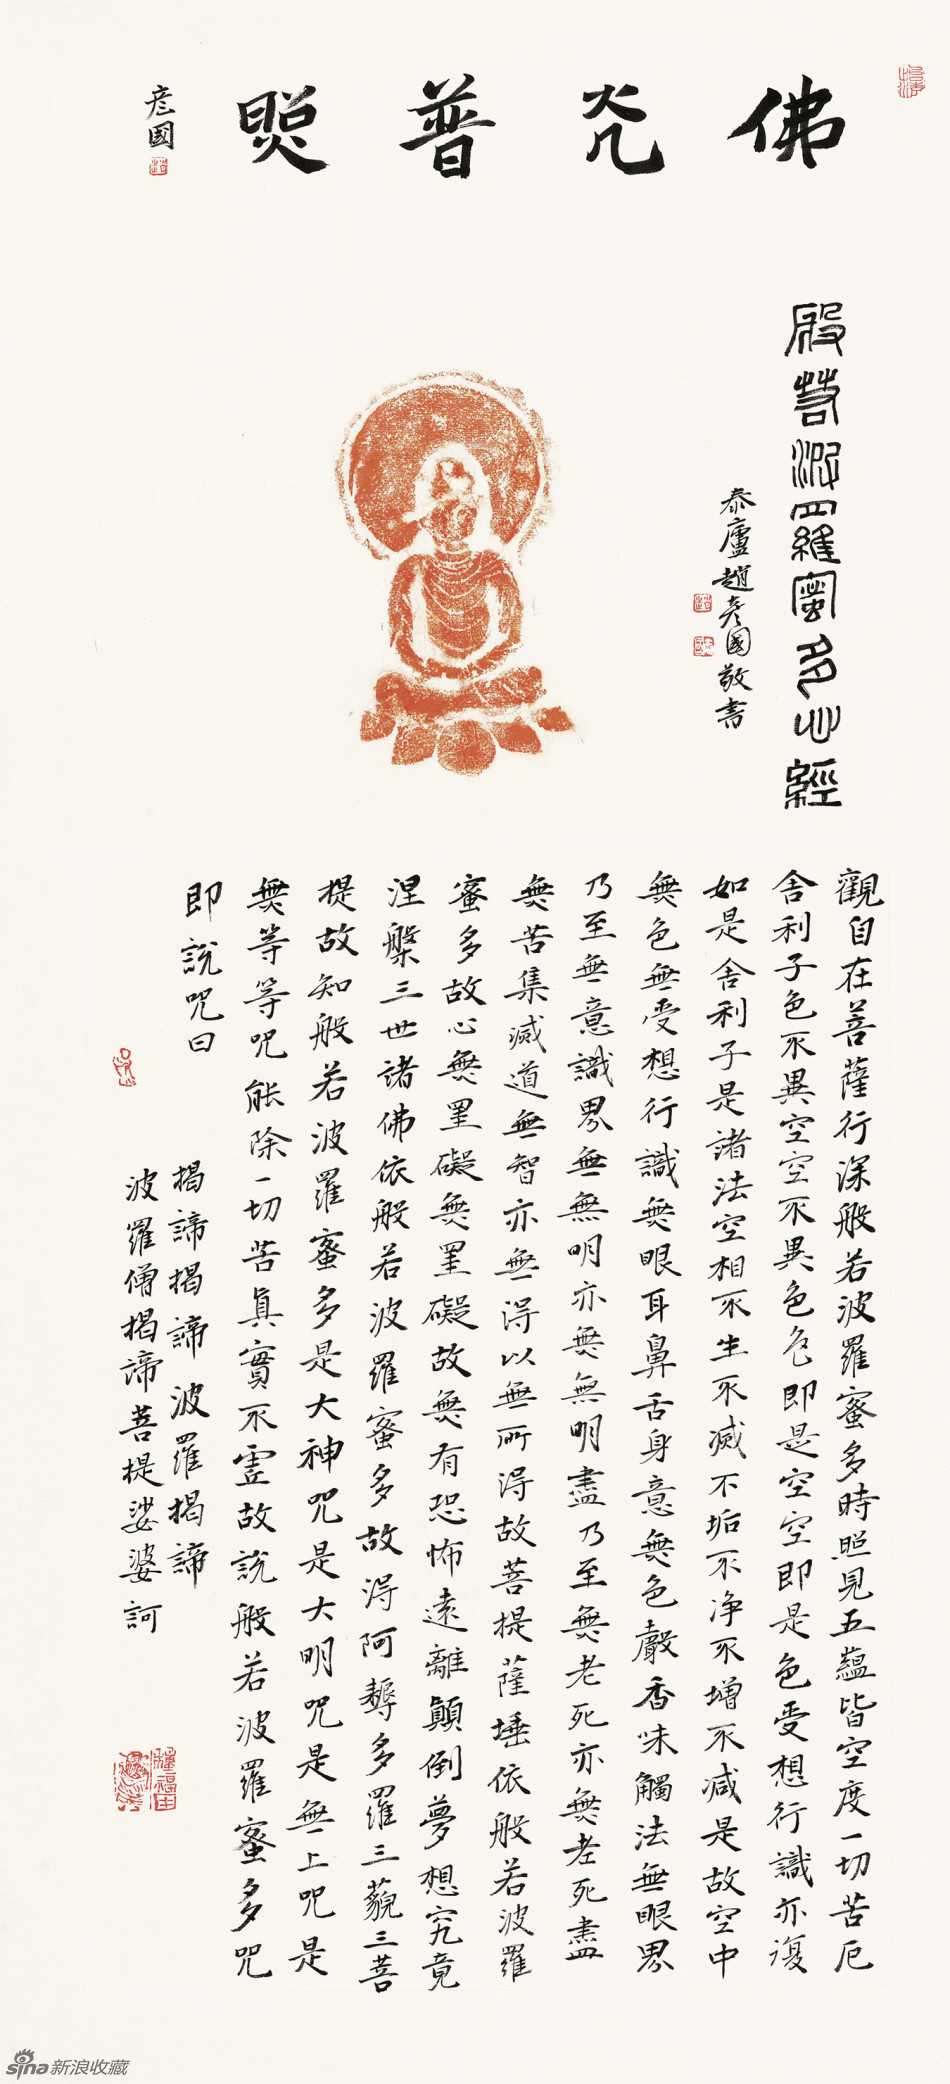 佛灮普照
彥國
般若波羅蜜多心經
泰廬趙彥國敬書
觀自在菩薩行深般若波羅蜜多時照見五蘊皆空度一切苦厄
舍利子色不異空空不異色色即是空空即是色受想行識亦復
如是舍利子是諸法空相不生不滅不垢不净不增不減是故空中
無色無受想行識無眼耳鼻舌身意無色聲香味觸法無眼界
乃至無意識界無無明亦無無明盡乃至無老死亦無老死盡
無苦集滅道無智亦無得以無所得故菩提薩埵依般若波羅
蜜多故心無罣礙無罣礙故無有恐怖遠離顛倒夢想究竟
涅槃三世諸佛依般若波羅蜜多故得阿耨多羅三藐三菩
提故知般若波羅蜜多是大神咒是大明咒是無上咒是
無等等咒能除一切苦真實不虛故說般若波羅蜜多咒
即說咒曰
揭諦揭諦波羅揭諦
波羅僧揭諦菩提娑婆訶
種福田
sina新浪收藏